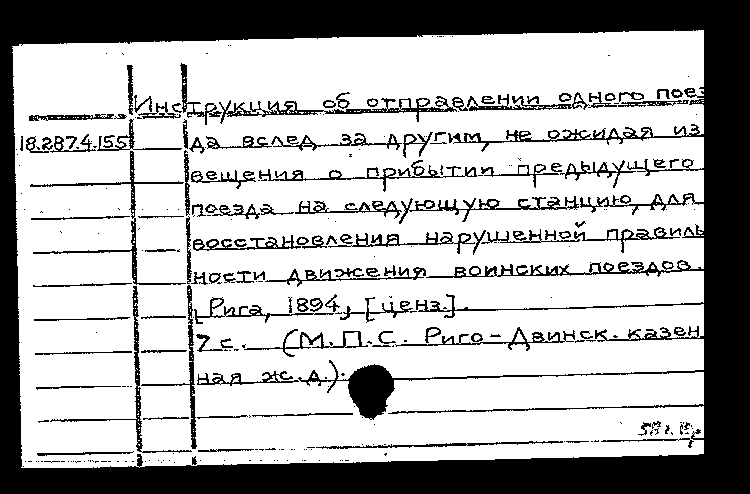 Инструкция об отправлении одного поез
18.287.4.155 да вслед за другим, не ожидая из
вещения о прибытии предыдущего
поезда на следующую станцию, для
восстановления нарушенной правиль
ности движения воинских поездов.
[Рига, 1894, [ценз.].
7 с. (М.П.С. Риго-Двинск. казен
ная ж.д.).